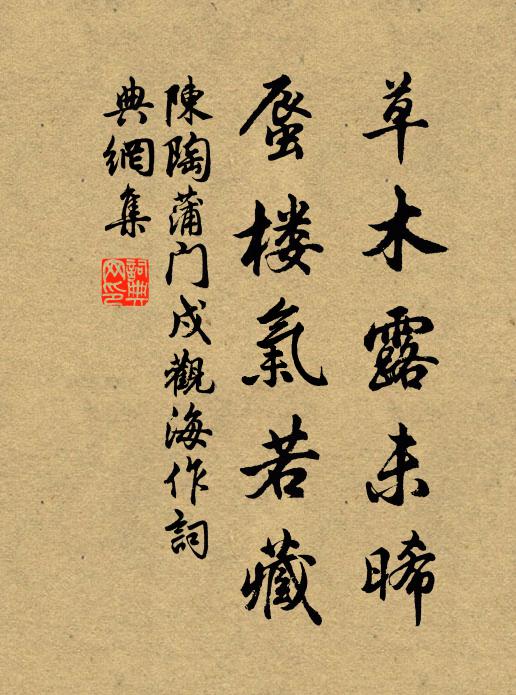 草木露未晞
蜃楼氣若藏
陳陶蒲门戍觀海作詞
典網集
詞典
网印